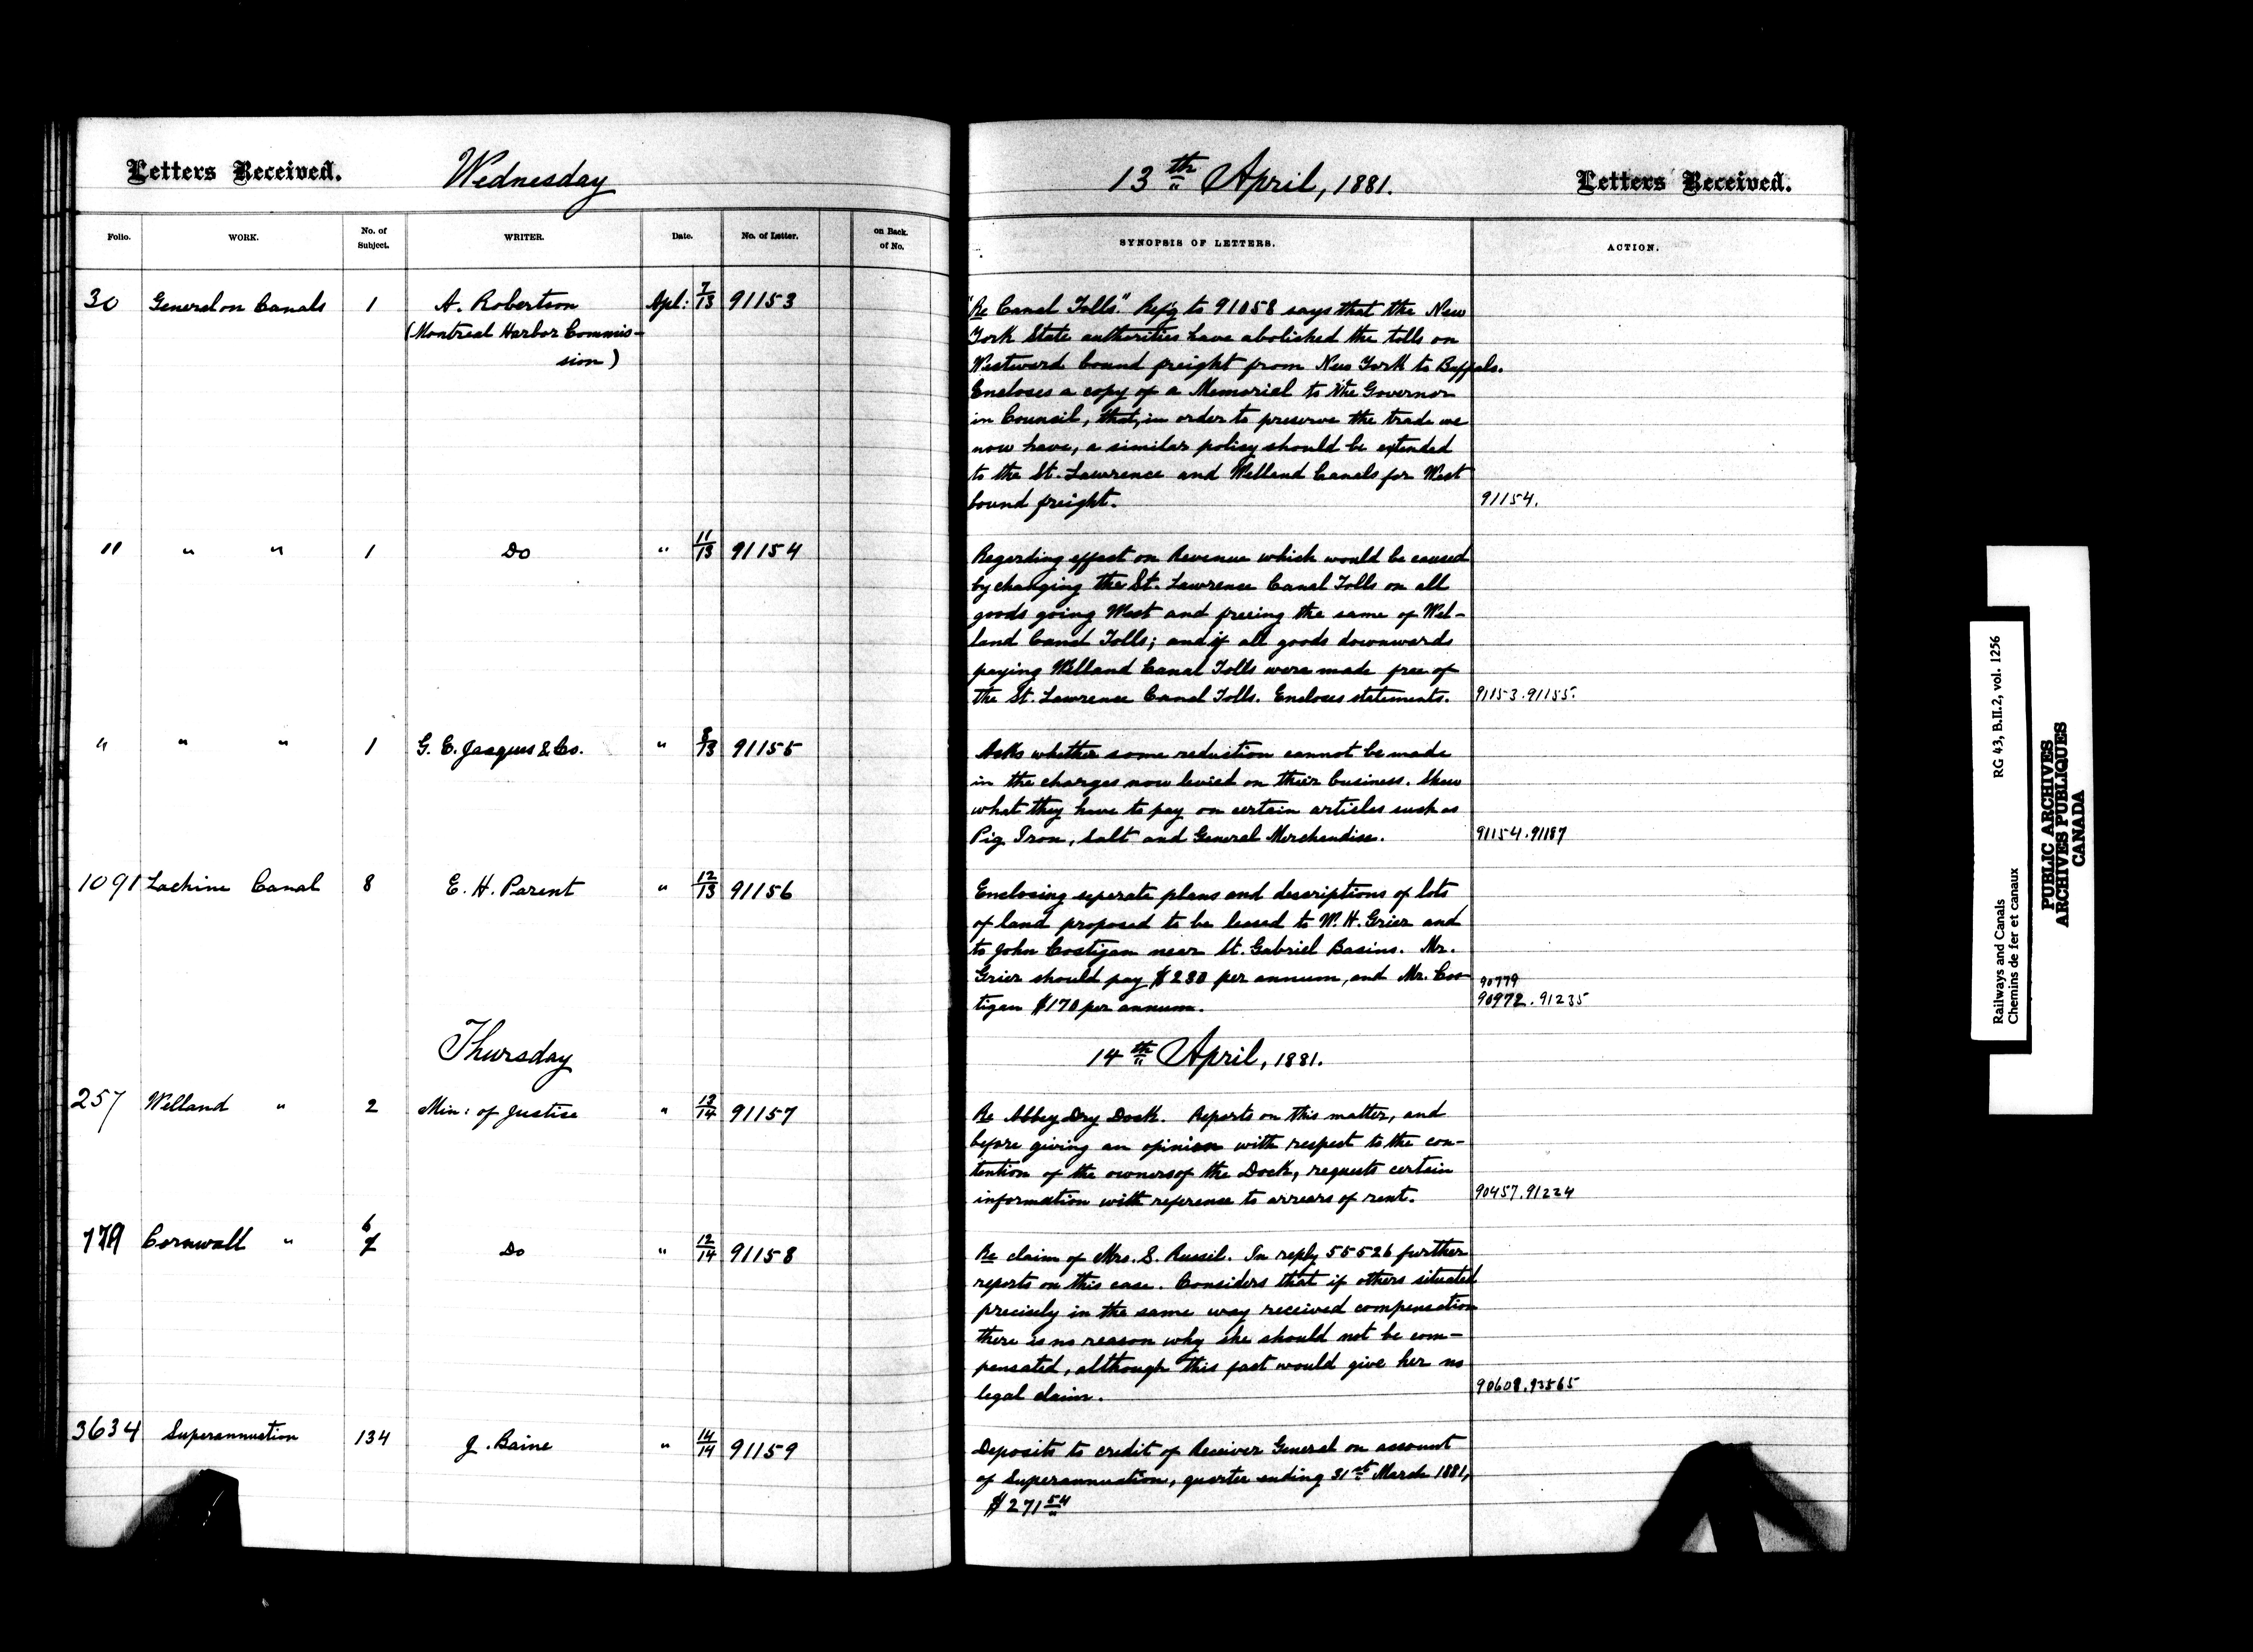 Letters Received. Wednesday
Folio. WORK. No. of Subject. WRITER. Date. No. of Letter. on Back. of No.
30 General on Canals 1 A. Robertson Apl: 7/13 91153
(Montreal Harbor Commis-
sion)
" " " 1 Do " 11/13 91154
" " " 1 G. E. Jaques & Co. " 8/13 91155
1091 Lachine Canal 8 E. H. Parent " 12/13 91156
Thursday
257 Welland " 2 Min: of Justice " 12/14 91157
779 Cornwall " 6 Do " 12/14 91158
3634 Superannuation 134 J. Baine " 14/14 91159
13th April, 1881. Letters Received.
SYNOPSIS OF LETTERS. ACTION.
"Re Canal Tolls" Ref'g to 91058 says that the New
York State authorities have abolished the tolls on
Westward bound freight from New York to Buffalo.
Encloses a copy of a Memorial to the Governor
in Council, that, in order to preserve the trade we
now have, a similar policy should be extended
to the St. Lawrence and Welland Canals for West
bound freight. 91154.
Regarding effect on Revenue which would be caused
by changing the St. Lawrence Canal Tolls on all
goods going West and freeing the same of Wel-
land Canal Tolls; and if all goods downwards
paying Welland Canal Tolls were made free of
the St. Lawrence Canal Tolls. Encloses statements. 91153.91155.
Asks whether some reduction cannot be made
in the charges now levied on their business. Shew
what they have to pay on certain articles such as
Pig Iron, Salt and General Merchandise. 91154.91187
Enclosing separate plans and descriptions of lots
of land proposed to be leased to W. H. Grier and
to John Costigan near St. Gabriel Basins. Mr.
Grier should pay $280 per annum, and Mr. Cos- 90779
tigan $170 per annum. 90972.91235
14th April, 1881.
Re Abbey Dry Dock. Reports on this matter, and
before giving an opinion with respect to the con-
tention of the owners of the Dock, requests certain
information with reference to arrears of rent. 90457.91224
Re claim of Mrs. S. Russil. In reply 55526 further
reports on this case. Considers that if others situated
precisely in the same way received compensation
there is no reason why she should not be com-
pensated, although this fact would give her no
legal claim. 90608.93565
Deposits to credit of Receiver General on account
of Superannuation, quarter ending 31st March 1881,
$271 54
Railways and Canals RG 43, B.II.2, vol. 1256
Chemins de fer et canaux
PUBLIC ARCHIVES
ARCHIVES PUBLIQUES
CANADA